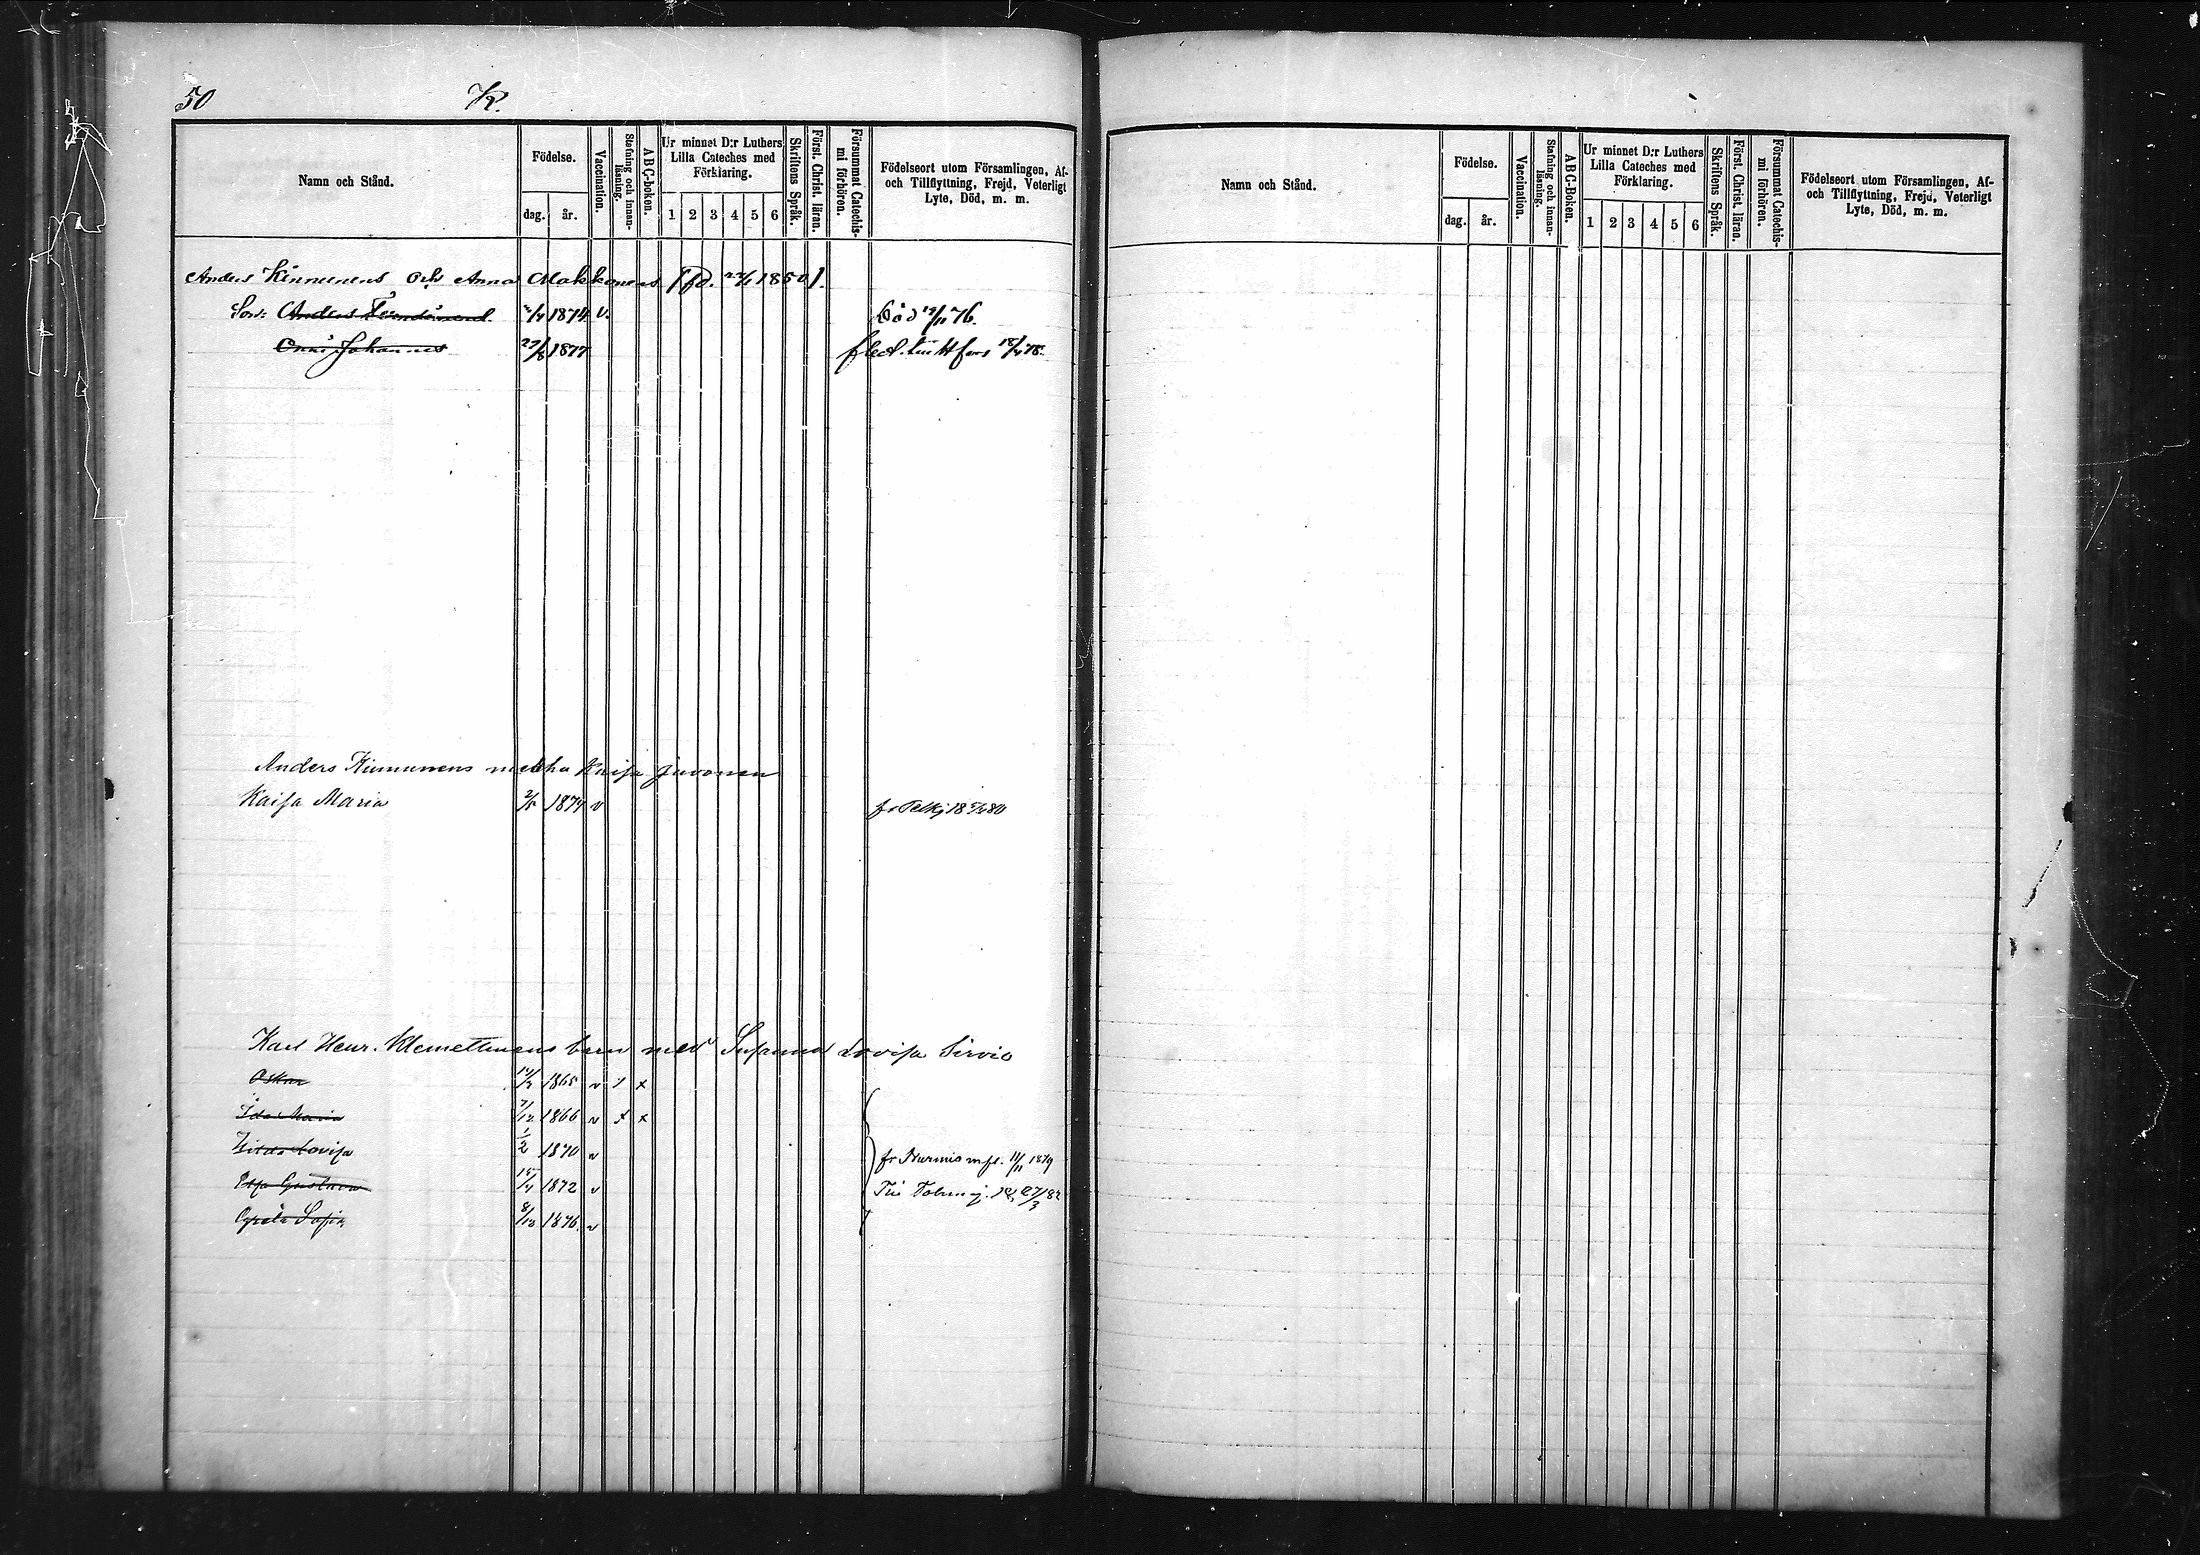 50 K.
Namn och Stånd.
Födelse.
dag. år.
Vaccination.
Stafning och innan-läsning.
ABC-boken.
Ur minnet D:r Luthers Lilla Cateches med Förklaring.
1 2 3 4 5 6
Skriftens Språk.
Först. Christ. läran.
Försummat Catechis-mi förhören.
Födelseort utom Församlingen, Af-
och Tillflyttning, Frejd, Veterligt
Lyte, Död, m. m.
Anders Kinnunens och Anna Makkonens (fd. 1850).
Son: Anders 1874 v. Död 76.
Onni Johannes 27/8 1877
Anders Kinnunens m Kaisa Juvonen
Kaisa Maria 2/5 1874 v
Karl Henr. Klemettinens barn med Susanna Lovisa Sirvio
Oskar 1865 v
Ida Maria 7/12 1866 v x
Lovisa 1/2 1870 v fr Nurmis 11/11 1879
Elsa Gustava 15/4 1872 v
Sofia 8/12 1876. v
Namn och Stånd.
Födelse.
dag. år.
Vaccination.
Stafning och innan-läsning.
ABC-Boken.
Ur minnet D:r Luthers Lilla Cateches med Förklaring.
1 2 3 4 5 6
Skriftens Språk.
Först. Christ. läran.
Försummat Catechis-mi förhören.
Födelseort utom Församlingen, Af-
och Tillflyttning, Frejd, Veterligt
Lyte, Död, m. m.